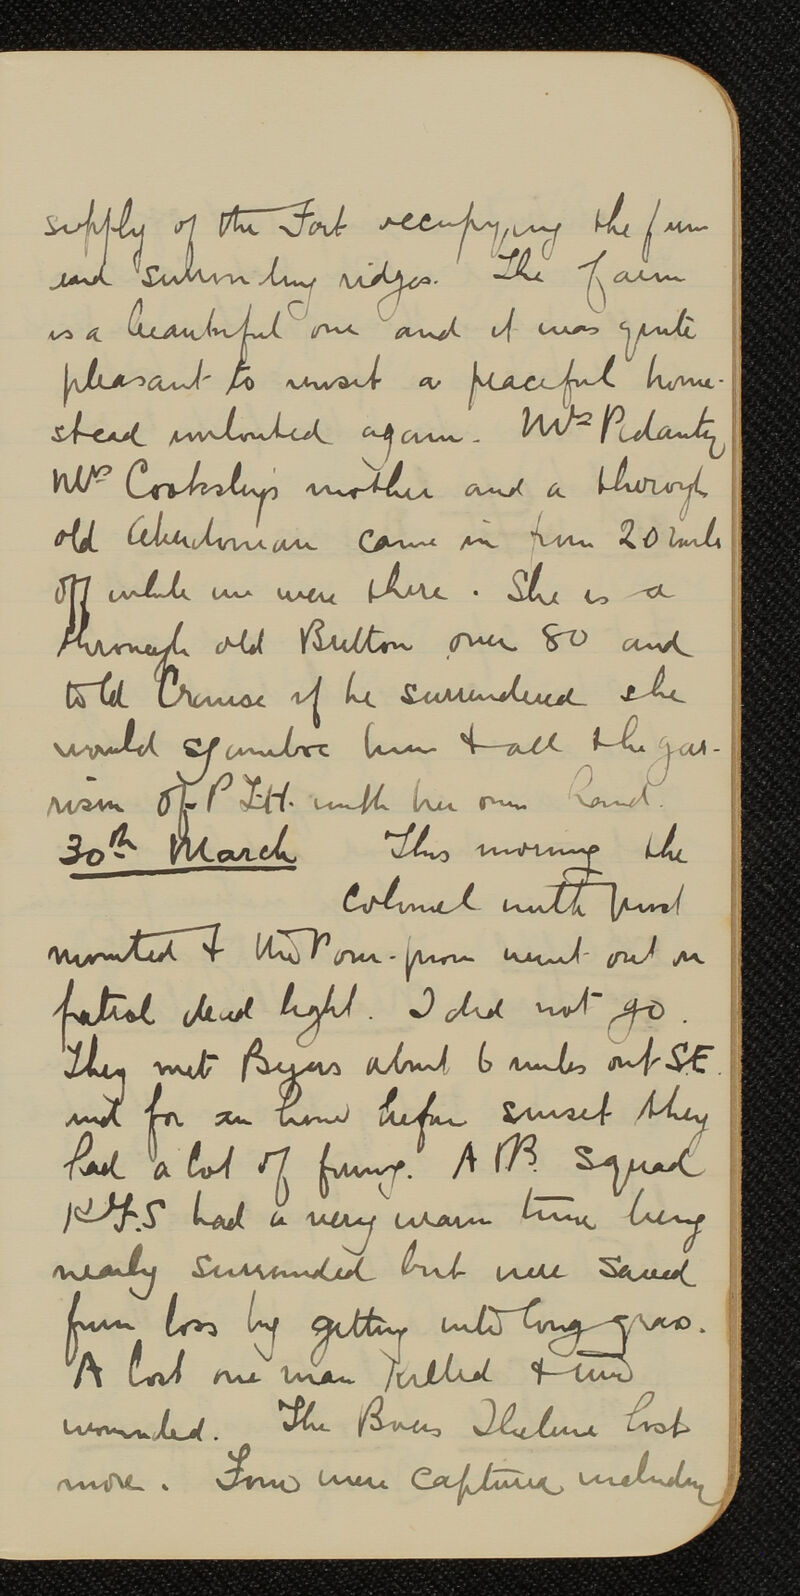 supply of the Fort occupying the farm
and surrounding ridges. The farm
is a beautiful one and it was quite
pleasant to visit a peaceful home-
stead unlooted again. Mrs
Mrs mother and a thorough
old Aberdonian came in from 20 miles
off while we were there. She is a
through old Britton over 80 and
told if he surrendered she
would sjambok him & all the gar-
rison of P with her own hand.
30th March This morning the
Colonel with first
mounted & the Pom-pom went out on
patrol dead light. I did not go.
They met Boyers about 6 miles out S.E.
and for an hour before sunset they
had a lot of firing. A & B. Squad
K.F.S had a very warm time being
nearly surrounded but were saved
from loss by getting into long grass.
A lost one man killed & two
wounded. The Boers I believe lost
more. Four were captured including